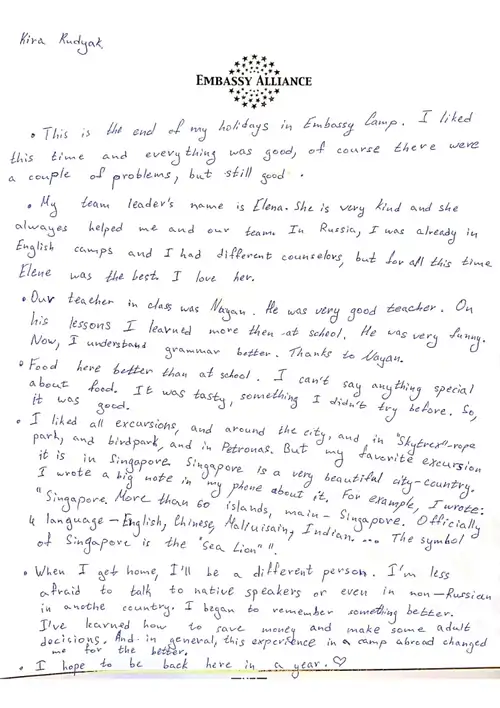 Kira Rudyak
EMBASSY ALLIANCE
• This is the end of my holidays in Embassy Camp. I liked
this time and everything was good, of course there were
a couple of problems, but still good.
• My team leader's name is Elena. She is very kind and she
always helped me and our team. In Russia, I was already in
English camps and I had different counselors, but for all this time
Elene was the best. I love her.
• Our teacher in class was Nayan. He was very good teacher. On
his lessons I learned more then at school. He was very funny.
Now, I understand grammar better. Thanks to Nayan.
• Food here better than at school. I can't say anything special
about food. It was tasty, something I didn't try before. So,
it was good.
• I liked all excursions, and around the city, and in "Skytrex"-rope
park, and birdpark, and in Petronas. But my favorite excursion
it is in Singapore. Singapore is a very beautiful city-country.
I wrote a big note in my phone about it. For example, I wrote:
"Singapore. More than 60 islands, main - Singapore. Officially
4 language - English, Chinese, Malluisain, Indian. ... The symbol
of Singapore is the "Sea Lion"".
• When I get home, I'll be a different person. I'm less
afraid to talk to native speakers or even in non-Russian
in anothe country. I began to remember something better.
I've learned how to save money and make some adult
decisions. And in general, this experience in a camp abroad changed
me for the better.
• I hope to be back here in a year. ♡